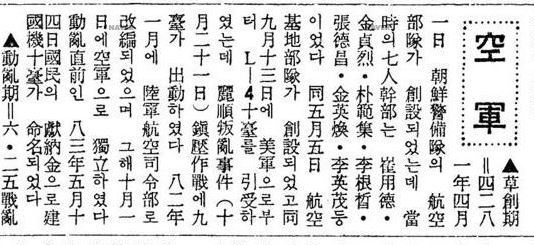 空軍
▲草創期
=四二八
一年四月
一日 朝鮮警備隊의 航空
部隊가 創設되었는데 當
時의七人幹部는 崔用德·
金貞烈·朴範集·李根晳·
張德昌·金英煥·李英茂등
이었다 同五月五日 航空
基地部隊가 創設되었고同
九月十三日에 美軍으로부
터 L—4十臺를 引受하
였는데 麗順叛亂事件(十
月二十一日)鎭壓作戰에九
臺가 出動하였다 八二年
一月에 陸軍航空司令部로
改編되었으며 그해十月一
日에空軍으로 獨立하였다
動亂直前인 八三年五月十
四日國民의 獻納金으로建
國機十臺가 命名되었다
▲動亂期=六·二五戰亂